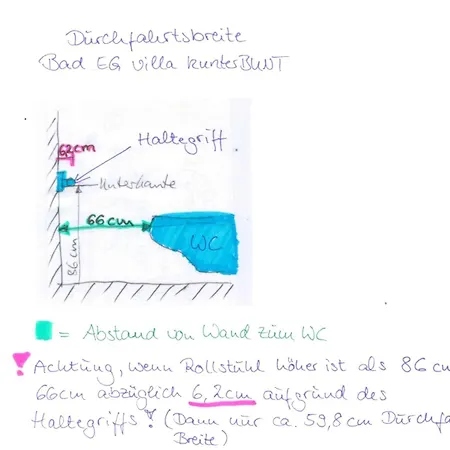 Durchfahrtsbreite
Bad EG Villa KunterBUNT
62cm
Haltegriff
Unterkante
66cm
WC
86cm
= Abstand von Wand zum WC
! Achtung, wenn Rollstuhl höher ist als 86 cm
66cm abzüglich 6,2cm aufgrund des
Haltegriffs! (Dann nur ca. 59,8cm Durchfa
Breite)